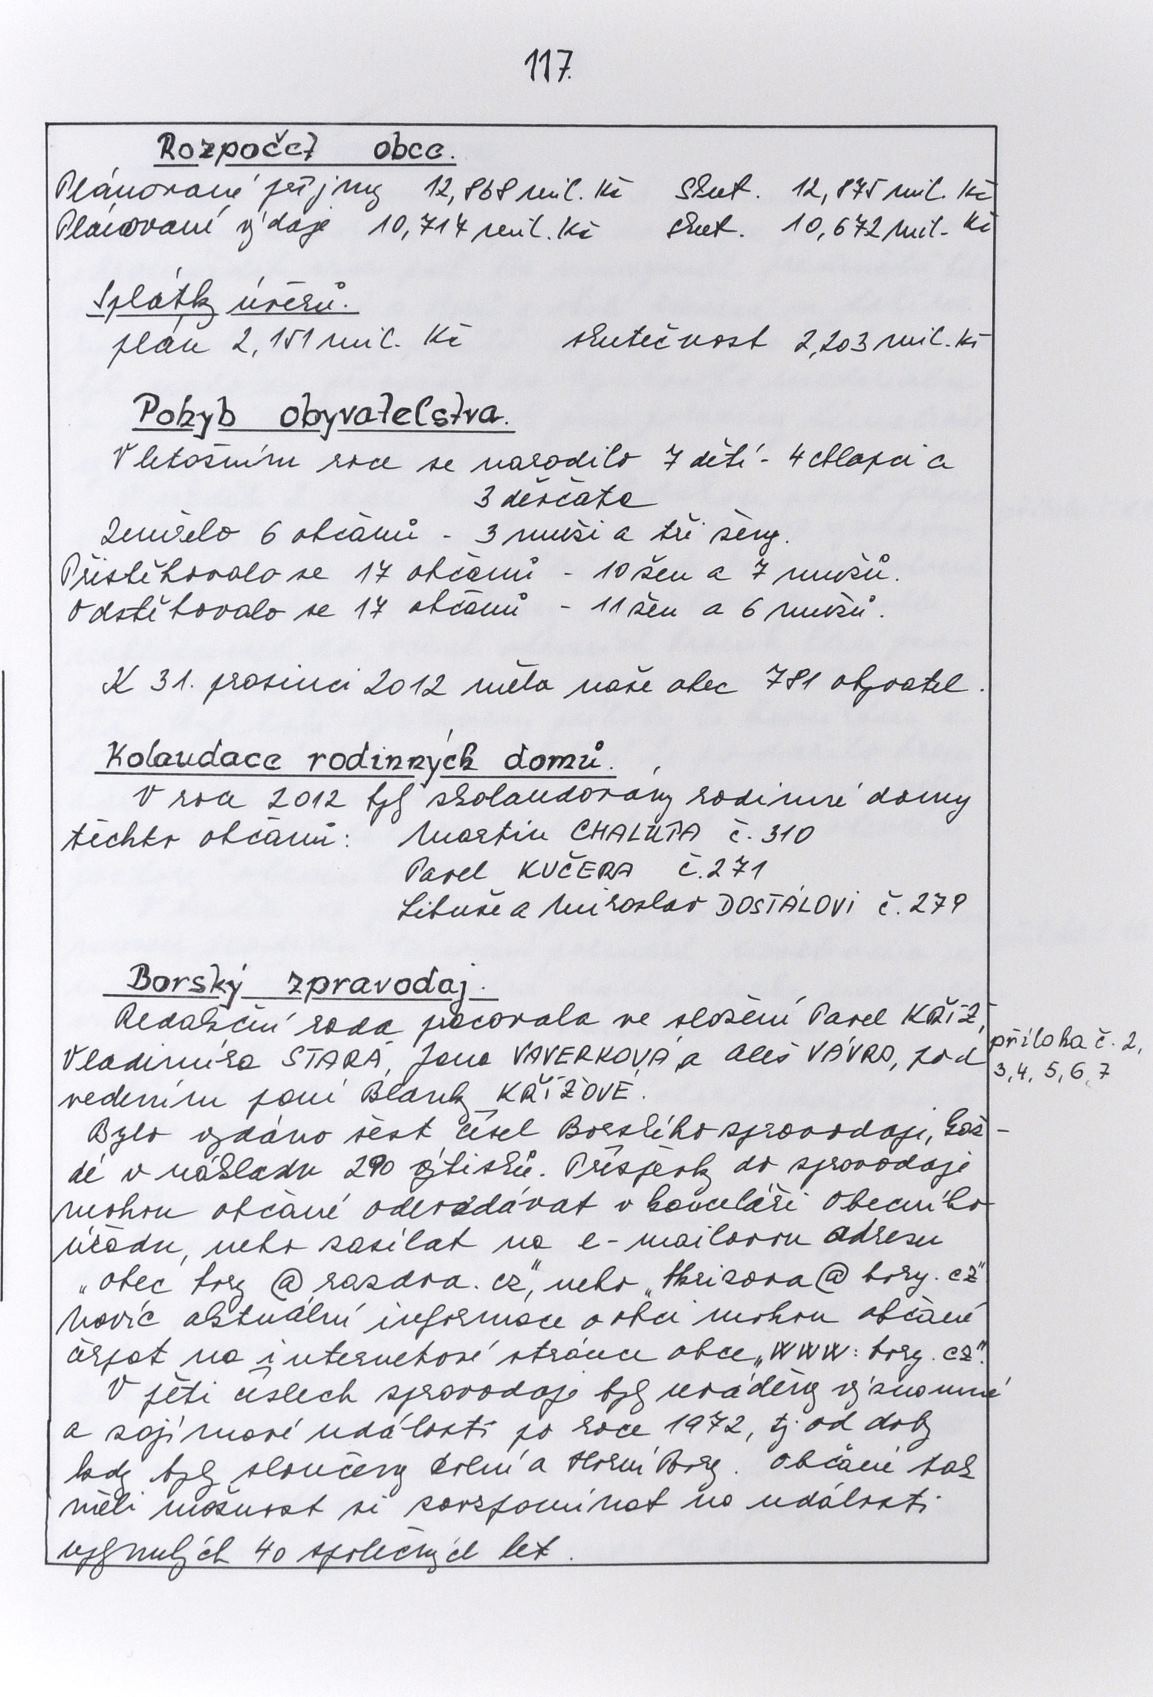 117.
Rozpočet obce.
Plánované příjmy 12,868 mil. Kč Skut. 12,875 mil. Kč
Plánované výdaje 10,714 mil. Kč skut. 10,672 mil. Kč
Splátky úvěrů.
plán 2,151 mil. Kč skutečnost 2,203 mil. Kč
Pohyb obyvatelstva.
V letošním roce se narodilo 7 dětí - 4 chlapci a
3 děvčata
Zemřelo 6 občanů - 3 muži a tři ženy.
Přistěhovalo se 17 občanů - 10 žen a 7 mužů.
Odstěhovalo se 17 občanů - 11 žen a 6 mužů.
K 31. prosinci 2012 měla naše obec 781 obyvatel.
Kolaudace rodinných domů.
V roce 2012 byly zkolaudovány rodinné domy
těchto občanů: Martin CHALUPA č. 310
Pavel KUČERA č. 271
Libuše a Miroslav DOSTÁLOVI č. 279
Borský zpravodaj.
Redakční rada pracovala ve složení Pavel KŘÍŽ,
Vladimíra STARÁ, Jana VAVERKOVÁ a Aleš VÁVRA, pod
příloha č. 2,
3, 4, 5, 6, 7
vedením paní Blanky KŘÍŽOVÉ.
Bylo vydáno šest čísel Borského zpravodaje, kaž-
dé v nákladu 290 výtisků. Příspěvky do zpravodaje
mohou občané odevzdávat v kanceláři Obecního
úřadu, nebo zasílat na e-mailovou adresu
„obec bory @ razdva. cz", nebo „bkrizova @ bory. cz"
Navíc aktuální informace o obci mohou občané
čerpat na internetové stránce obce „WWW: bory. cz".
V pěti číslech zpravodaje byly uváděny významné
a zajímavé události po roce 1972, tj od doby
kdy byly sloučeny Dolní a Horní Bory. Občané tak
měli možnost si zavzpomínat na události
uplynulých 40 společných let.